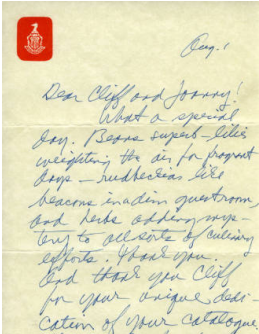 Aug. 1
Dear Cliff and Joanny!
What a special
day. Beans superb – lilies
weighting the air for fragrant
days – rudbeckias like
beacons in a dim guestroom,
and herbs adding mys-
tery to all sorts of culinary
efforts. Thank you.
And thank you Cliff
for your unique dedi-
cation of your catalogue